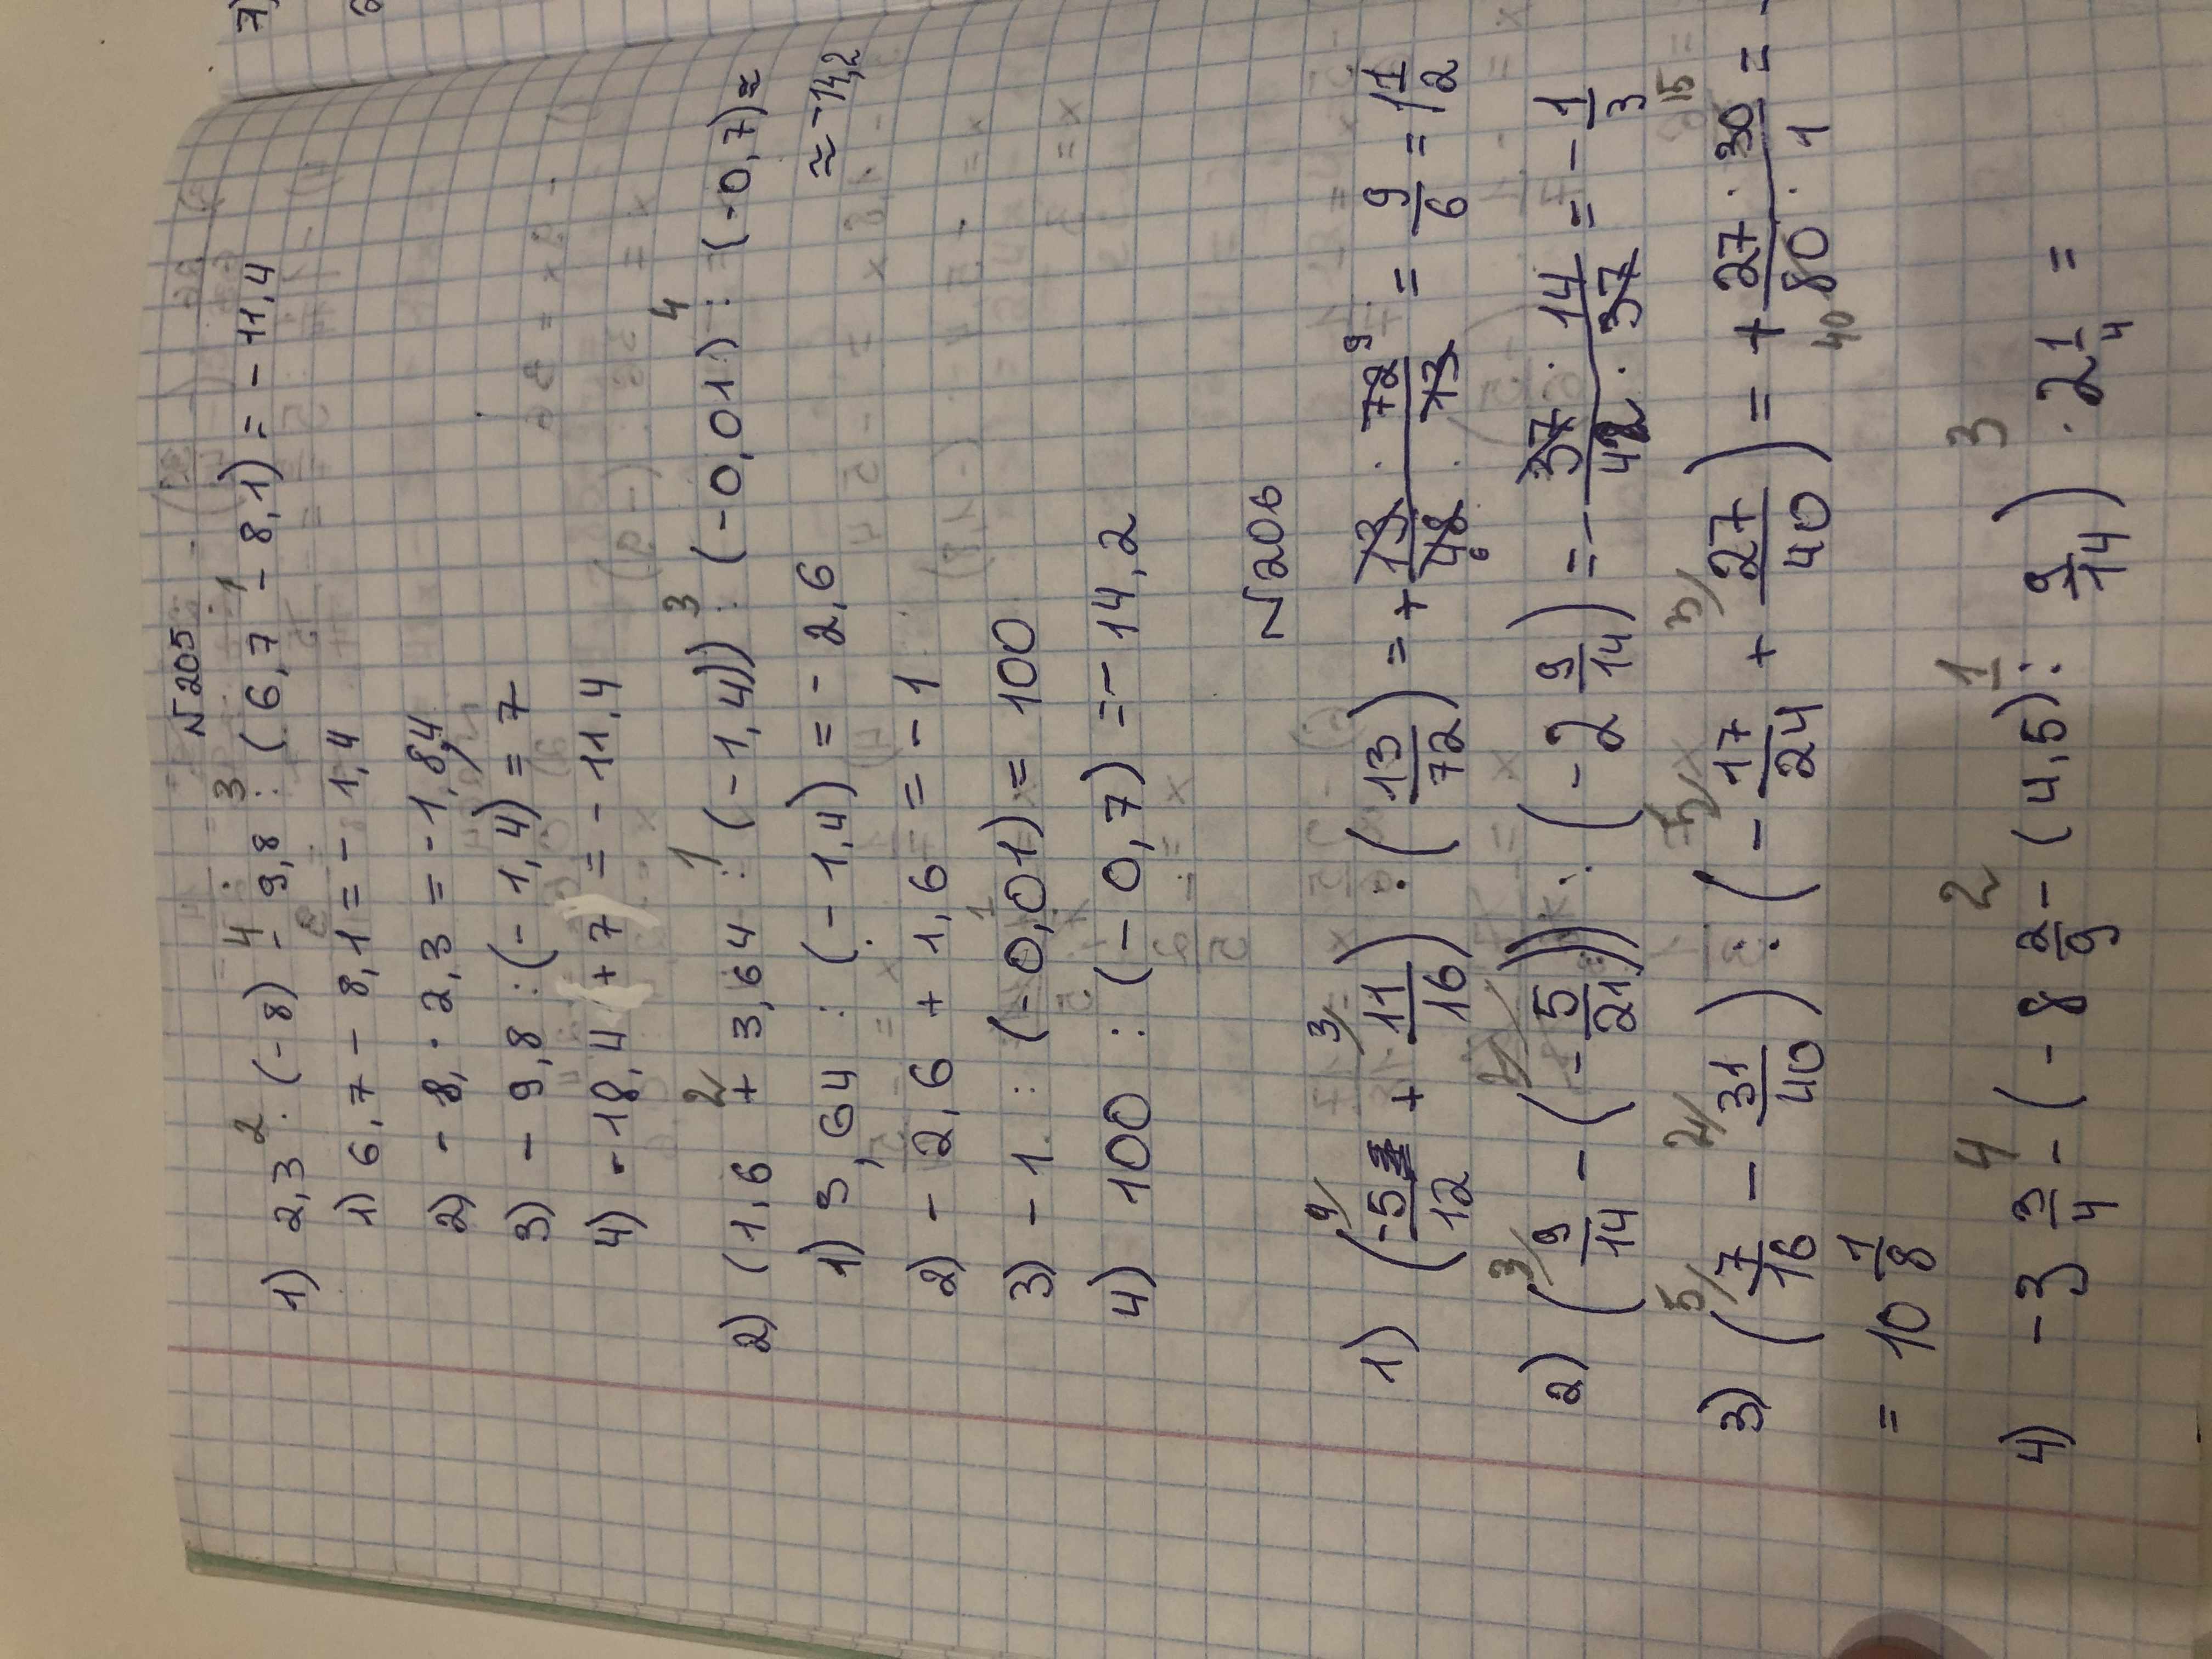 N205
1) 2,3 · (-8) - 9,8 : (6,7 - 8,1) = - 11,4
1) 6,7 - 8,1 = - 1,4
2) - 8, · 2,3 = - 1,8,4
3) - 9,8 : (- 1,4) = 7
4) - 18,4 + 7 = - 11,4
2) (1,6 + 3,64 : (-1,4)) : (-0,01) : (-0,7) ≈
≈ -14,2
1) 3,64 : (- 1,4) = - 2,6
2) - 2,6 + 1,6 = - 1
3) - 1 : (- 0,01) = 100
4) 100 : (- 0,7) = - 14,2
N206
1) (-5/12 + 11/16) : (13/72) = + 13/48 · 72/73 = 9/6 = 1 1/2
2) (9/14 - (- 5/21)) : (- 2 9/14) = - 37/42 · 14/37 = - 1/3
3) (7/16 - 31/40) : (- 17/24 + 27/40) = + 27/80 · 30/1 =
= 10 1/8
4) - 3 3/4 - (- 8 2/9 - (4,5) : 9/14) · 2 1/4 =